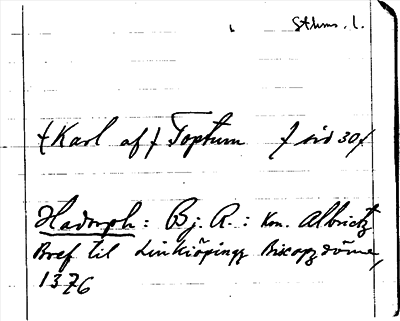 Sthms. l.
{Karl af} Toptum {sid 30}
Hadorph: Bj. R.: Kon. Albrictz
Bref til Linkiöpingz Biscopzdöme,
1376